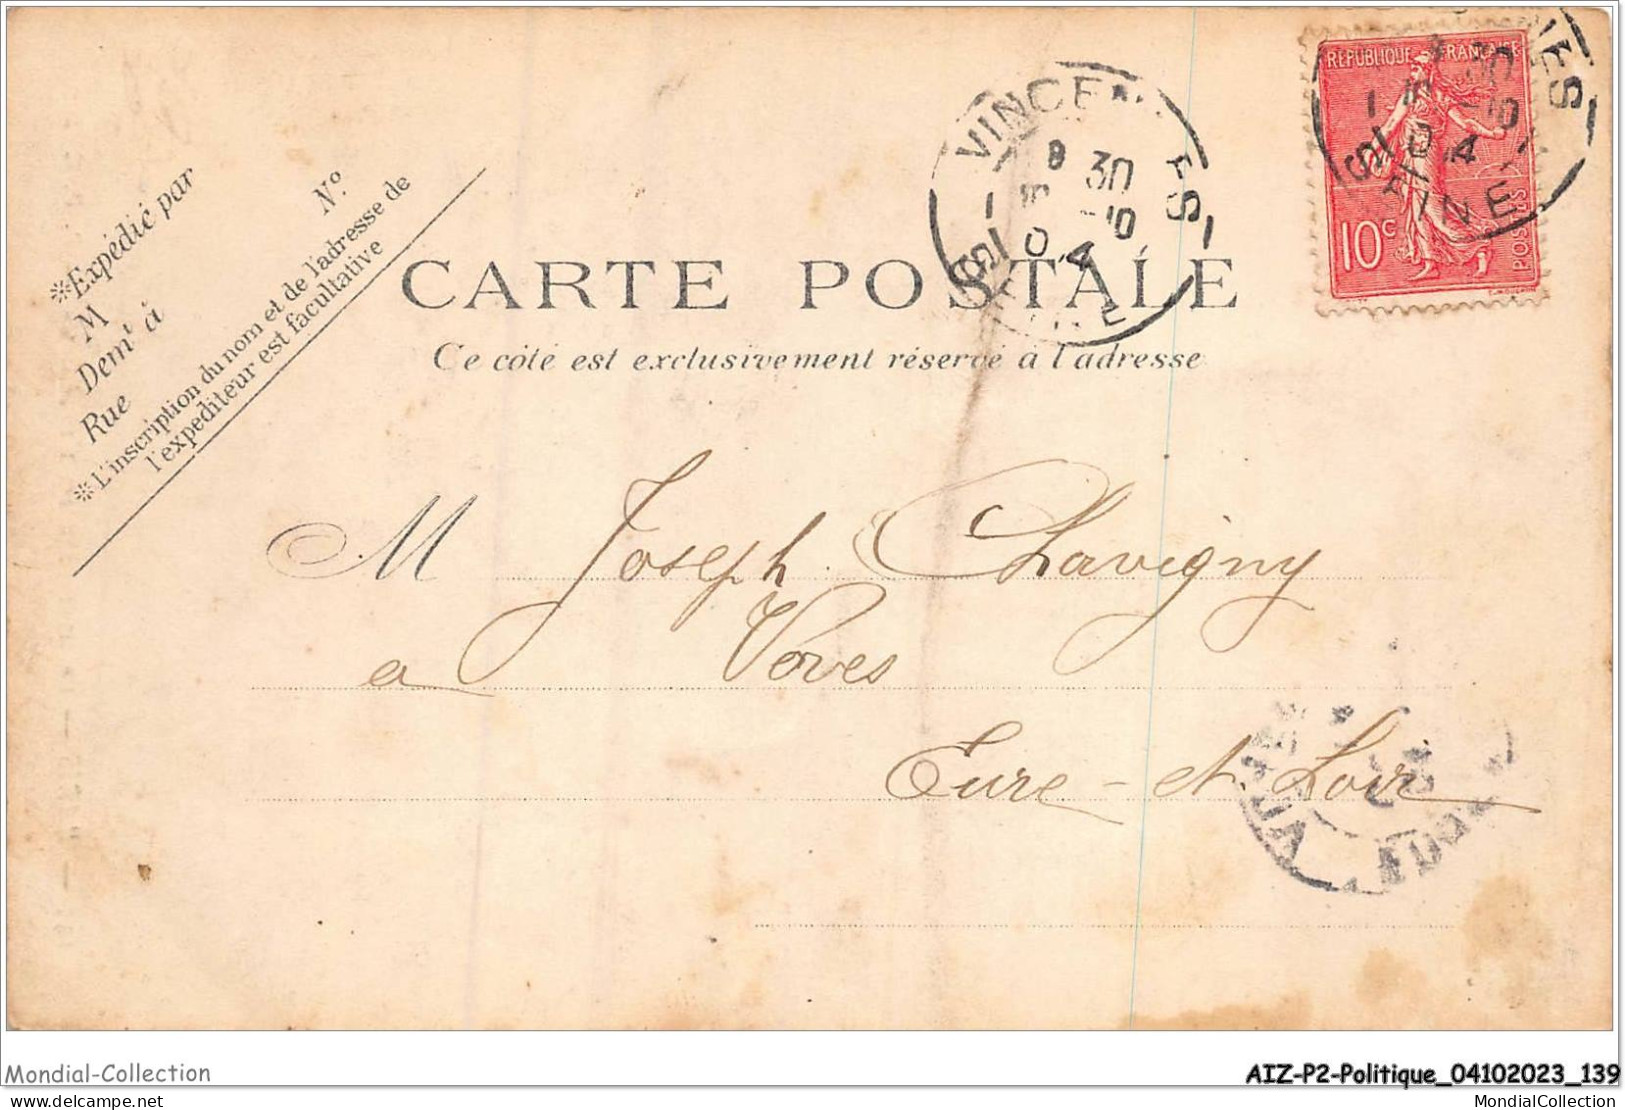 CARTE POSTALE
Ce côté est exclusivement réservé à l'adresse
※Expédié par
M
Demt à
Rue
No
※L'inscription du nom et de l'adresse de
l'expéditeur est facultative
RÉPUBLIQUE FRANÇAISE
10c
POSTES
VINCENNES
9 30
10
04
SEINE
30
10
04
SEINE
M Joseph Chavigny
a Voves
Eure-et-Loir
Mondial-Collection
AIZ-P2-Politique_04102023_139
delcampe.net
MondialCollection